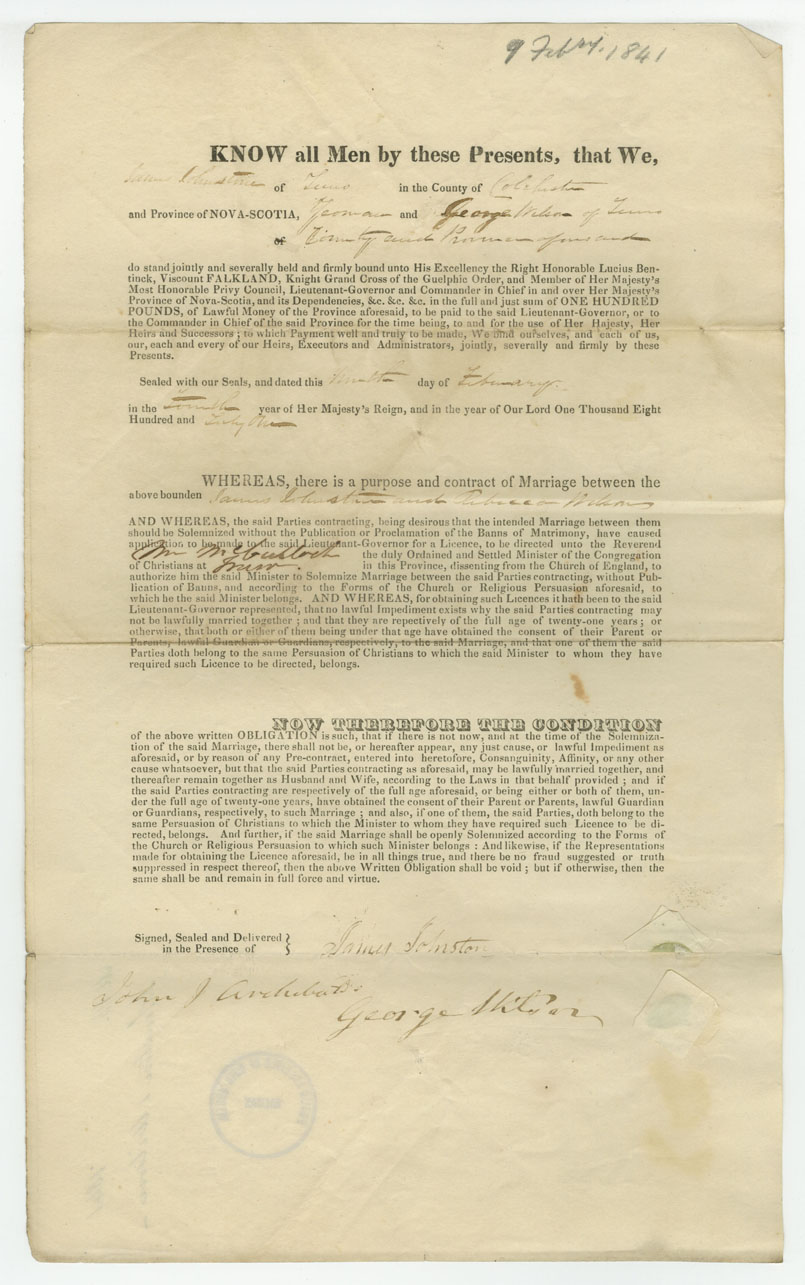 9 Febry. 1841
KNOW all Men by these Presents, that We,
James Johnstone of Truro in the County of Colchester
and Province of NOVA-SCOTIA, Yeoman and George Wilson of Truro
of County and Province aforesaid
do stand jointly and severally held and firmly bound unto His Excellency the Right Honorable Lucius Ben-
tinck, Viscount FALKLAND, Knight Grand Cross of the Guelphic Order, and Member of Her Majesty's
Most Honorable Privy Council, Lieutenant-Governor and Commander in Chief in and over Her Majesty's
Province of Nova-Scotia, and its Dependencies, &c. &c. &c. in the full and just sum of ONE HUNDRED
POUNDS, of Lawful Money of the Province aforesaid, to be paid to the said Lieutenant-Governor, or to
the Commander in Chief of the said Province for the time being, to and for the use of Her Hajesty, Her
Heirs and Successors ; to which Payment well and truly to be made, We bind ourselves, and each of us,
our, each and every of our Heirs, Executors and Administrators, jointly, severally and firmly by these
Presents.
Sealed with our Seals, and dated this Ninth day of February
in the Fourth year of Her Majesty's Reign, and in the year of Our Lord One Thousand Eight
Hundred and Forty One
WHEREAS, there is a purpose and contract of Marriage between the
above bounden James Johnston and Rebecca Wilson
AND WHEREAS, the said Parties contracting, being desirous that the intended Marriage between them
should be Solemnized without the Publication or Proclamation of the Banns of Matrimony, have caused
application to be made to the said Lieutenant-Governor for a Licence, to be directed unto the Reverend
Wm McCulloch the duly Ordained and Settled Minister of the Congregation
of Christians at Truro. in this Province, dissenting from the Church of England, to
authorize him the said Minister to Solemnize Marriage between the said Parties contracting, without Pub-
lication of Banns, and according to the Forms of the Church or Religious Persuasion aforesaid, to
which he the said Minister belongs. AND WHEREAS, for obtaining such Licences it hath been to the said
Lieutenant-Governor represented, that no lawful Impediment exists why the said Parties contracting may
not be lawfully married together ; and that they are repectively of the full age of twenty-one years ; or
otherwise, that both or either of them being under that age have obtained the consent of their Parent or
Parents, lawful Guardian or Guardians, respectively, to the said Marriage, and that one of them the said
Parties doth belong to the same Persuasion of Christians to which the said Minister to whom they have
required such Licence to be directed, belongs.
NOW THEREFORE THE CONDITION
of the above written OBLIGATION is such, that if there is not now, and at the time of the Solemniza-
tion of the said Marriage, there shall not be, or hereafter appear, any just cause, or lawful Impediment as
aforesaid, or by reason of any Pre-contract, entered into heretofore, Consanguinity, Affinity, or any other
cause whatsoever, but that the said Parties contracting as aforesaid, may be lawfully married together, and
thereafter remain together as Husband and Wife, according to the Laws in that behalf provided ; and if
the said Parties contracting are respectively of the full age aforesaid, or being either or both of them, un-
der the full age of twenty-one years, have obtained the consent of their Parent or Parents, lawful Guardian
or Guardians, respectively, to such Marriage ; and also, if one of them, the said Parties, doth belong to the
same Persuasion of Christians to which the Minister to whom they have required such Licence to be di-
rected, belongs. And further, if the said Marriage shall be openly Solemnized according to the Forms of
the Church or Religious Persuasion to which such Minister belongs : And likewise, if the Representations
made for obtaining the Licence aforesaid, be in all things true, and there be no fraud suggested or truth
suppressed in respect thereof, then the above Written Obligation shall be void ; but if otherwise, then the
same shall be and remain in full force and virtue.
Signed, Sealed and Delivered
in the Presence of
James Johnston
John J Archibald
George Wilson